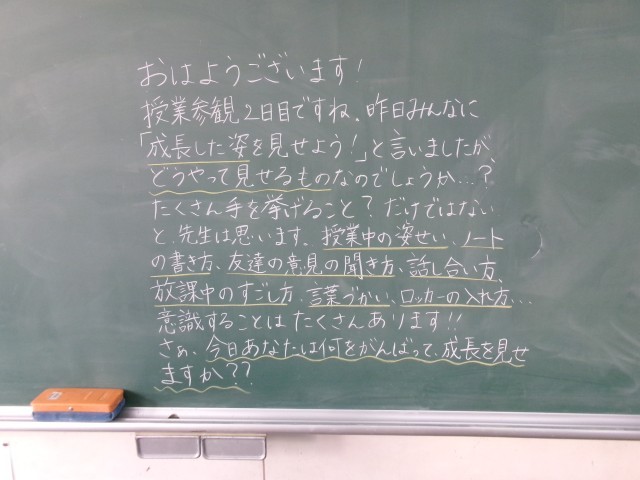 おはようございます!
授業参観2日目ですね。昨日みんなに
「成長した姿を見せよう!」と言いましたが、
どうやって見せるものなのでしょうか…?
たくさん手を挙げること?だけではない
と、先生は思います。授業中の姿せい、ノート
の書き方、友達の意見の聞き方、話し合い方、
放課中のすごし方、言葉づかい、ロッカーの入れ方…
意識することはたくさんあります!!
さぁ、今日あなたは何をがんばって、成長を見せ
ますか??